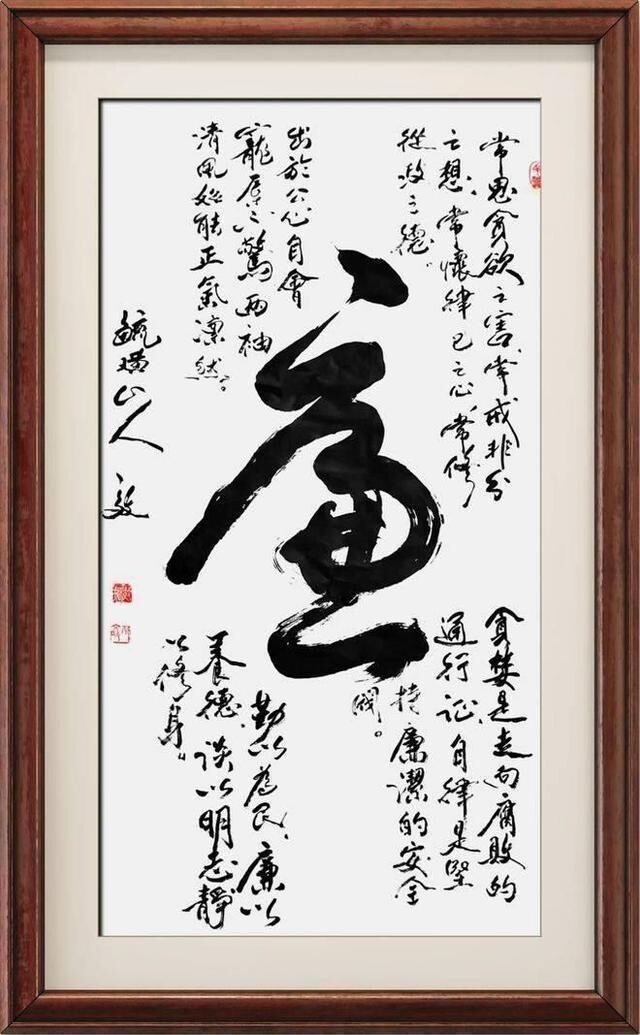 常思貪欲之害、常戒非分
之想、常懷律己之心、常修
從政之德。
出於公心自會
寵辱不驚两袖
清風始能正氣凛然。
廉
貪婪是走向腐敗的
通行证、自律是堅
持廉潔的安全
閥。
勤以為民、廉以
養德、淡以明志靜
以修身。
山人